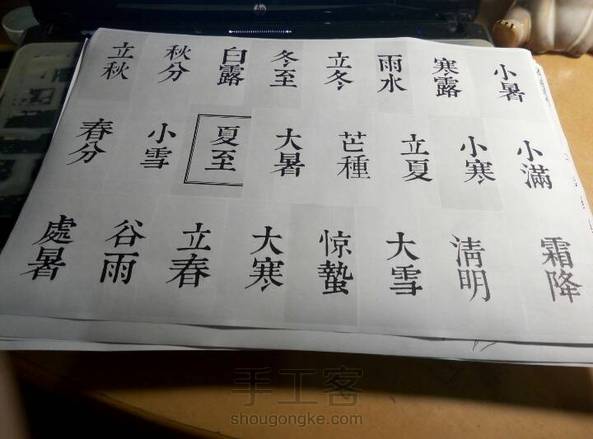 立秋 秋分 白露 冬至 立冬 雨水 寒露 小暑
春分 小雪 夏至 大暑 芒種 立夏 小寒 小滿
處暑 谷雨 立春 大寒 惊蟄 大雪 淸明 霜降
手工客
shougongke.com